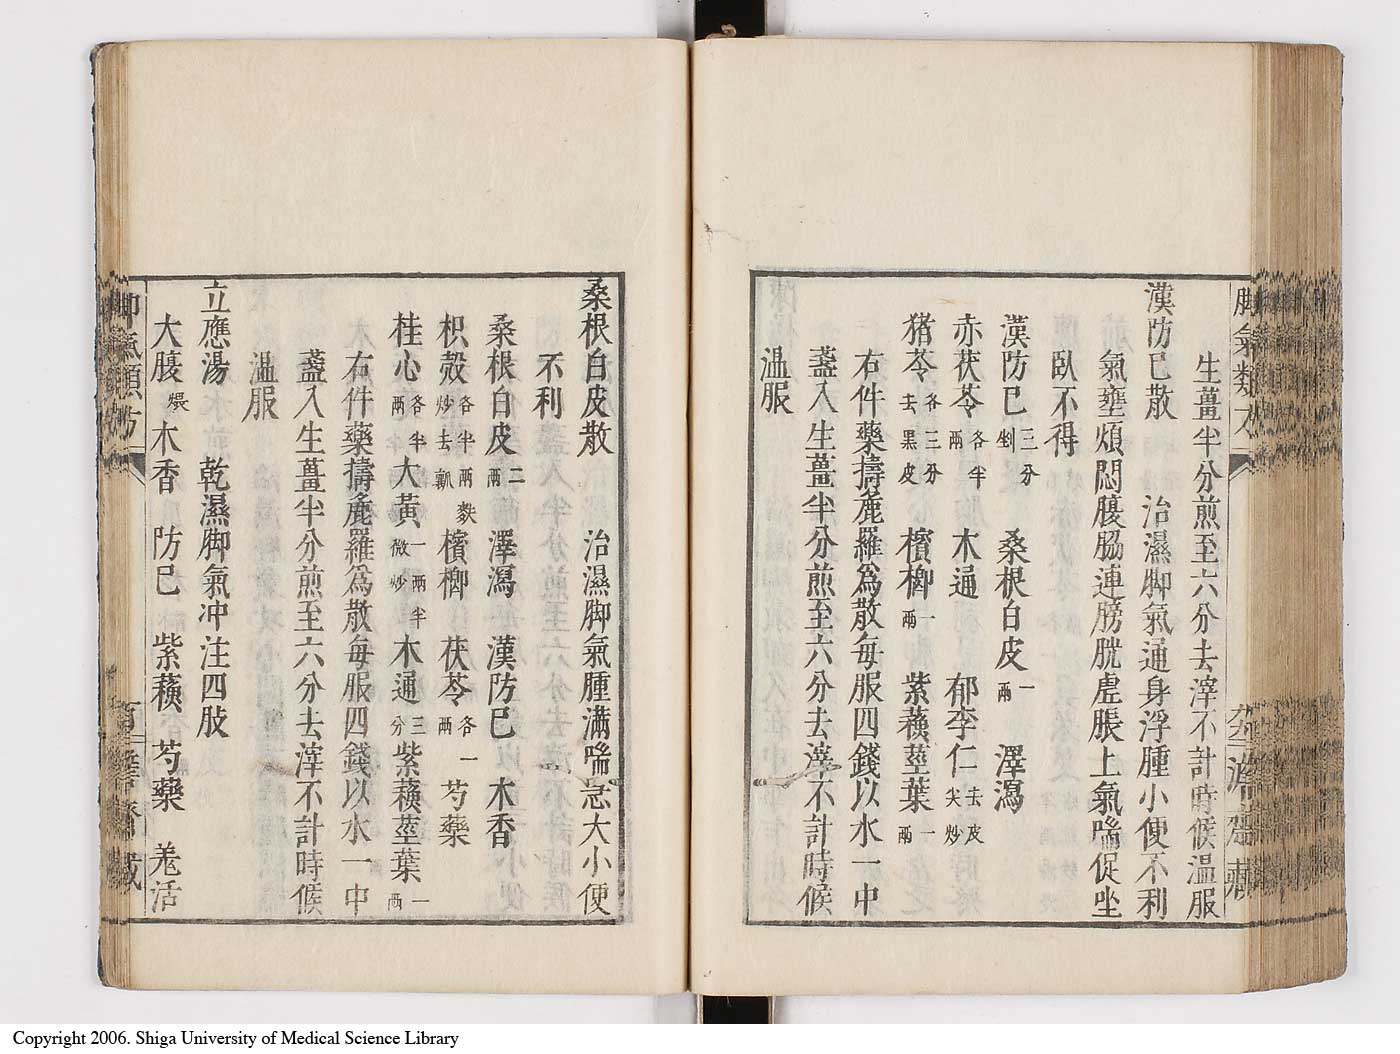 生薑半分煎至六分去滓不計時候温服
漢防巳散　治濕脚氣通身浮腫小便不利
氣壅煩悶腹脇連膀胱虚脹上氣喘促坐
臥不得
漢防巳三分剉　桑根白皮一兩　澤瀉
赤茯苓各半兩　木通　郁李仁去皮尖炒
猪苓各三分去黒皮　檳榔一兩　紫蘓莖葉一兩
右件藥擣麁羅為散每服四錢以水一中
盞入生薑半分煎至六分去滓不計時候
温服
桑根白皮散　治濕脚氣腫滿喘急大小便
不利
桑根白皮二兩　澤瀉　漢防巳　木香
枳殻各半兩麩炒去瓤　檳榔　茯苓各一兩　芍藥
桂心各半兩　大黄一兩半微炒　木通三分　紫蘓莖葉一兩
右件藥擣麁羅為散每服四錢以水一中
盞入生薑半分煎至六分去滓不計時候
温服
立應湯　乾濕脚氣冲注四肢
大腹煨　木香　防巳　紫蘓　芍藥　羗活
Copyright 2006. Shiga University of Medical Science Library